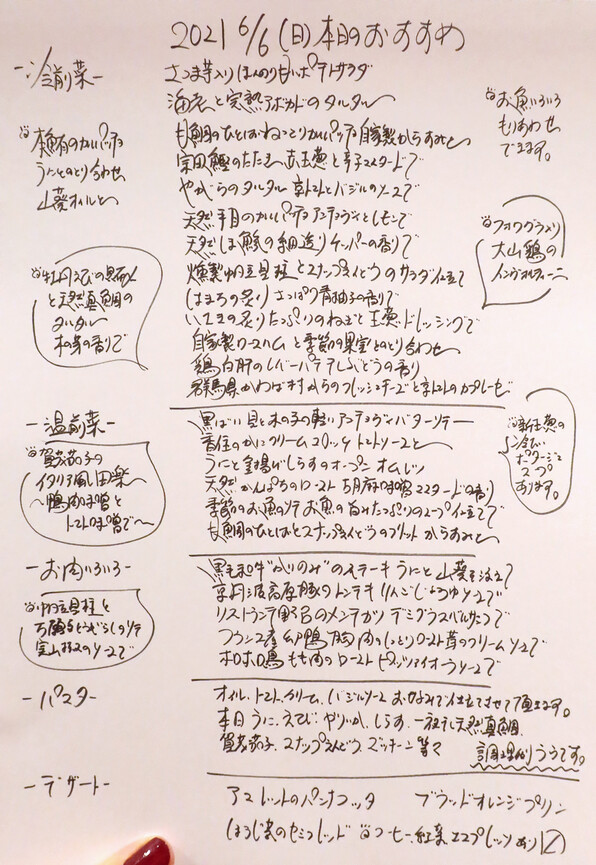 2021 6/6 (日) 本日のおすすめ
-冷前菜-
さつま芋入り ほんのり甘いポテトサラダ
海老と完熟アボカドのタルタル
甘鯛のひとしおねっとりカルパッチョ 自家製からすみと
宗田鰹のたたき 赤玉葱と辛子マスタードで
やがらのタルタル 京トマトとバジルのソースで
天然平目のカルパッチョ アンチョヴィとレモンで
天然しま鯵の細造り ケッパーの香りで
燻製帆立貝柱とスナップえんどうのサラダ仕立て
はまちの炙り さっぱり青柚子の香りで
いさきの炙り たっぷりのねぎと玉葱ドレッシングで
自家製ロースハムと季節の果実とのとり合わせ
鶏白肝のレバーパテ 干しぶどうの香り
群馬県かわばそだからのフレッシュチーズと京トマトのカプレーゼ
本鮪のカルパッチョ
うにとのとり合わせ
山葵オイルと
牡丹えびの昆布〆
と天然真鯛の
タルタル
木の芽の香りで
お魚いろいろ
もりあわせ
できます。
フォワグラ入り
大山鶏の
インヴォルティーニ
-温前菜-
黒ばい貝と木の子の軽いアンチョヴィバターソテー
香住のかにクリームコロッケ トマトソースと
うにと釜揚げしらすのオープンオムレツ
天然かんぱちのロースト 胡麻味噌マスタードの香り
季節のお魚のソテ お魚の旨みたっぷりのスープ仕立てで
甘鯛のひとしおとスナップえんどうのフリット からすみと
賀茂茄子の
イタリア風田楽
〜鴨肉味噌と
トマト味噌で〜
新玉葱の
冷たい
ポタージュ
スープ
あります。
-お肉いろいろ-
黒毛和牛"かのみ"のステーキ うにと山葵を添えて
京丹波高原豚のトンテキ りんごじょうゆソースで
リストランテ野呂のメンチカツ デミグラスバルサミコで
フランス産幼鴨胸肉のしっとりロースト 茸のクリームソースで
ホロホロ鳥もも肉のロースト ピッツァイオーラソースで
帆立貝柱と
万願寺とうがらしのソテ
実山椒のソースで
-パスタ-
オイル、トマト、クリーム、バジルソース お好みで仕立てさせて頂きます。
本日 うに、えび、やりいか、しらす、一汐干し天然真鯛、
賀茂茄子、スナップえんどう、ズッキーニ等々
調理例うらです。
-デザート-
アマレットのパンナコッタ
ブラッドオレンジプリン
ほうじ茶のセミフレッド
コーヒー、紅茶、エスプレッソあり